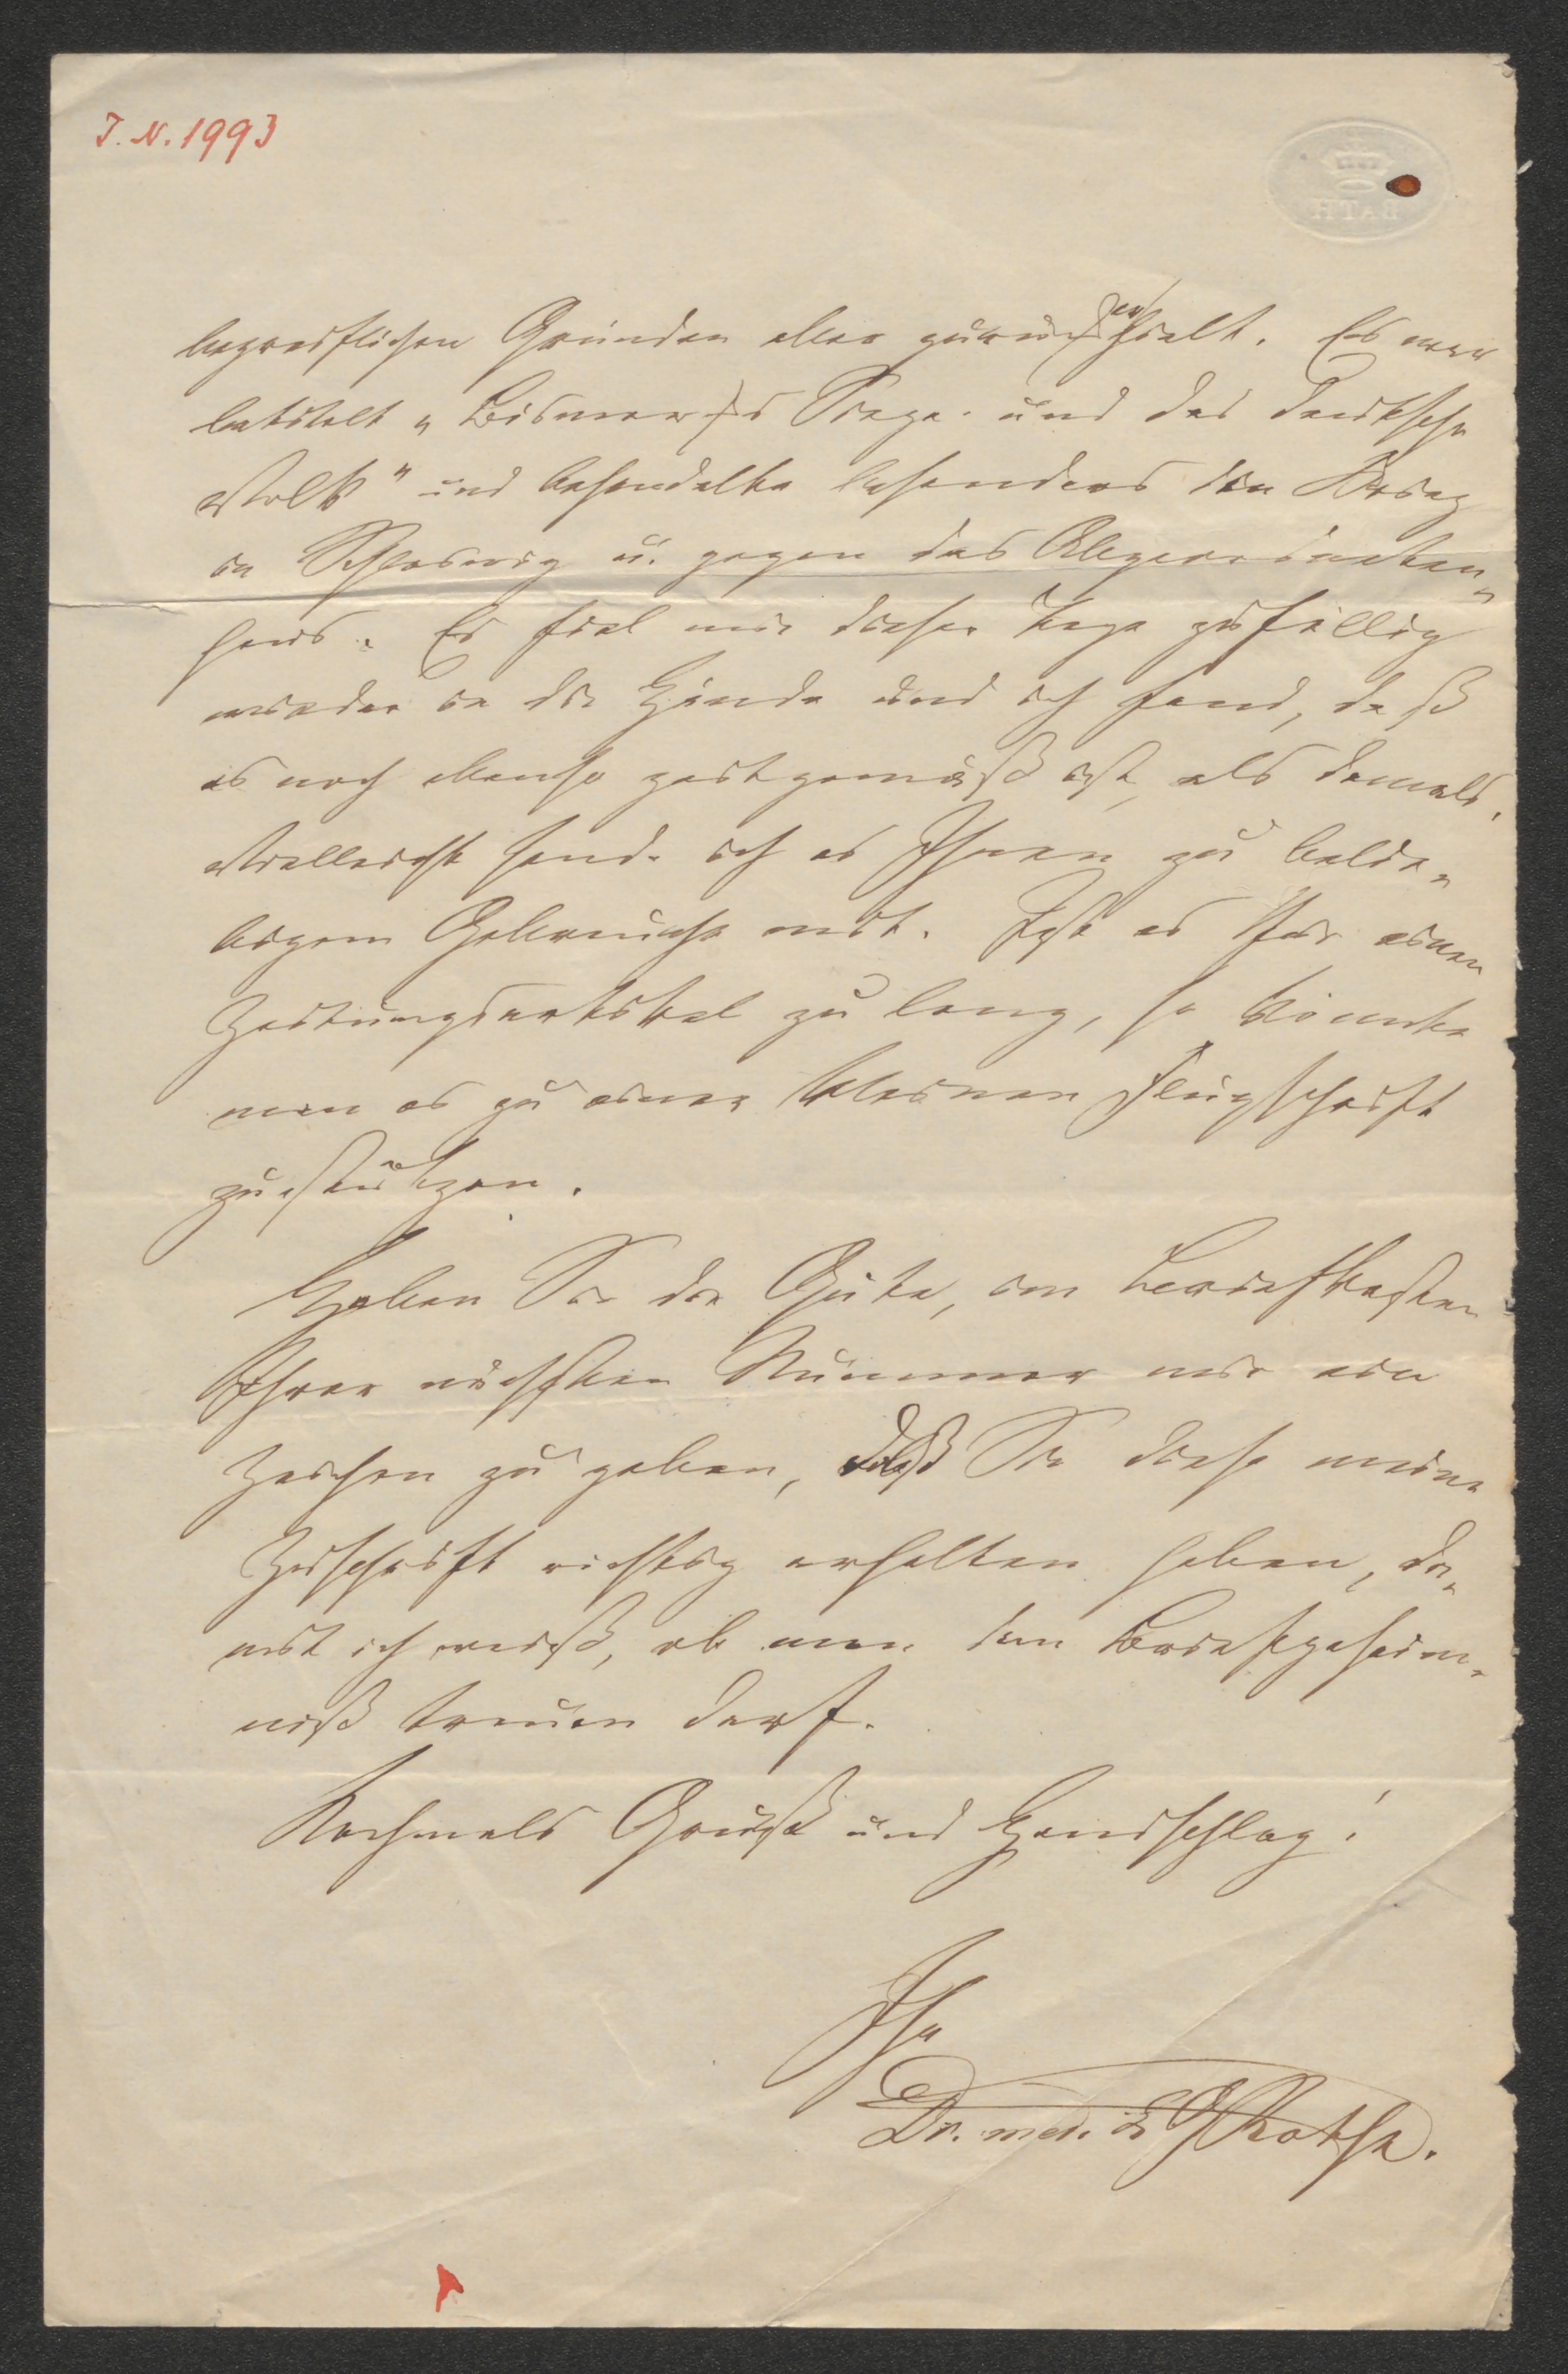 J. N. 1993
BATH
begreiflichen Gründen aber zurückhielt. Es war
betitelt „Bismarcks Siege und das deutsche
Volk" und behandelte besonders den Krieg
in Schleswig u. gegen das Abgeordneten-
haus. Es fiel mir dieser Tage zufällig
wieder in die Hände und ich fand, daß
es noch ebenso zeitgemäß ist, als damals.
Vielleicht sende ich es Ihnen zu belie-
bigem Gebrauche mit. Ist es für einen
Zeitungsartikel zu lang, so könnte
man es zu einer kleinen Flugschrift
zustutzen.
Haben Sie die Güte, im Briefkasten
Ihrer nächsten Nummer mir ein
Zeichen zu geben, daß Sie diese meine
Zuschrift richtig erhalten haben, da-
mit ich weiß, ob man dem Briefgeheim-
niß trauen darf.
Nochmals Gruß und Handschlag!
Ihr
Dr. med. Rothe.